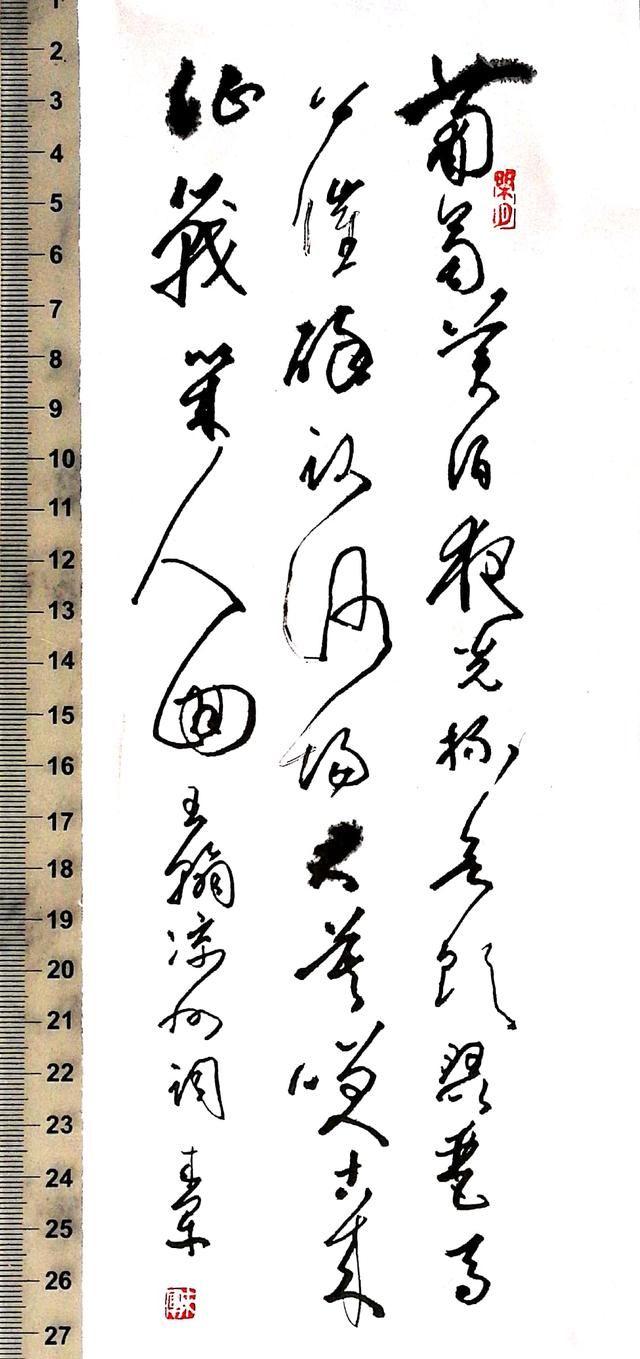 葡萄美酒夜光杯欲飲琵琶馬
上催醉卧沙場君莫笑古來
征戰幾人回王翰涼州詞
2
3
4
5
6
7
8
9
10
11
12
13
14
15
16
17
18
19
20
21
22
23
24
25
26
27